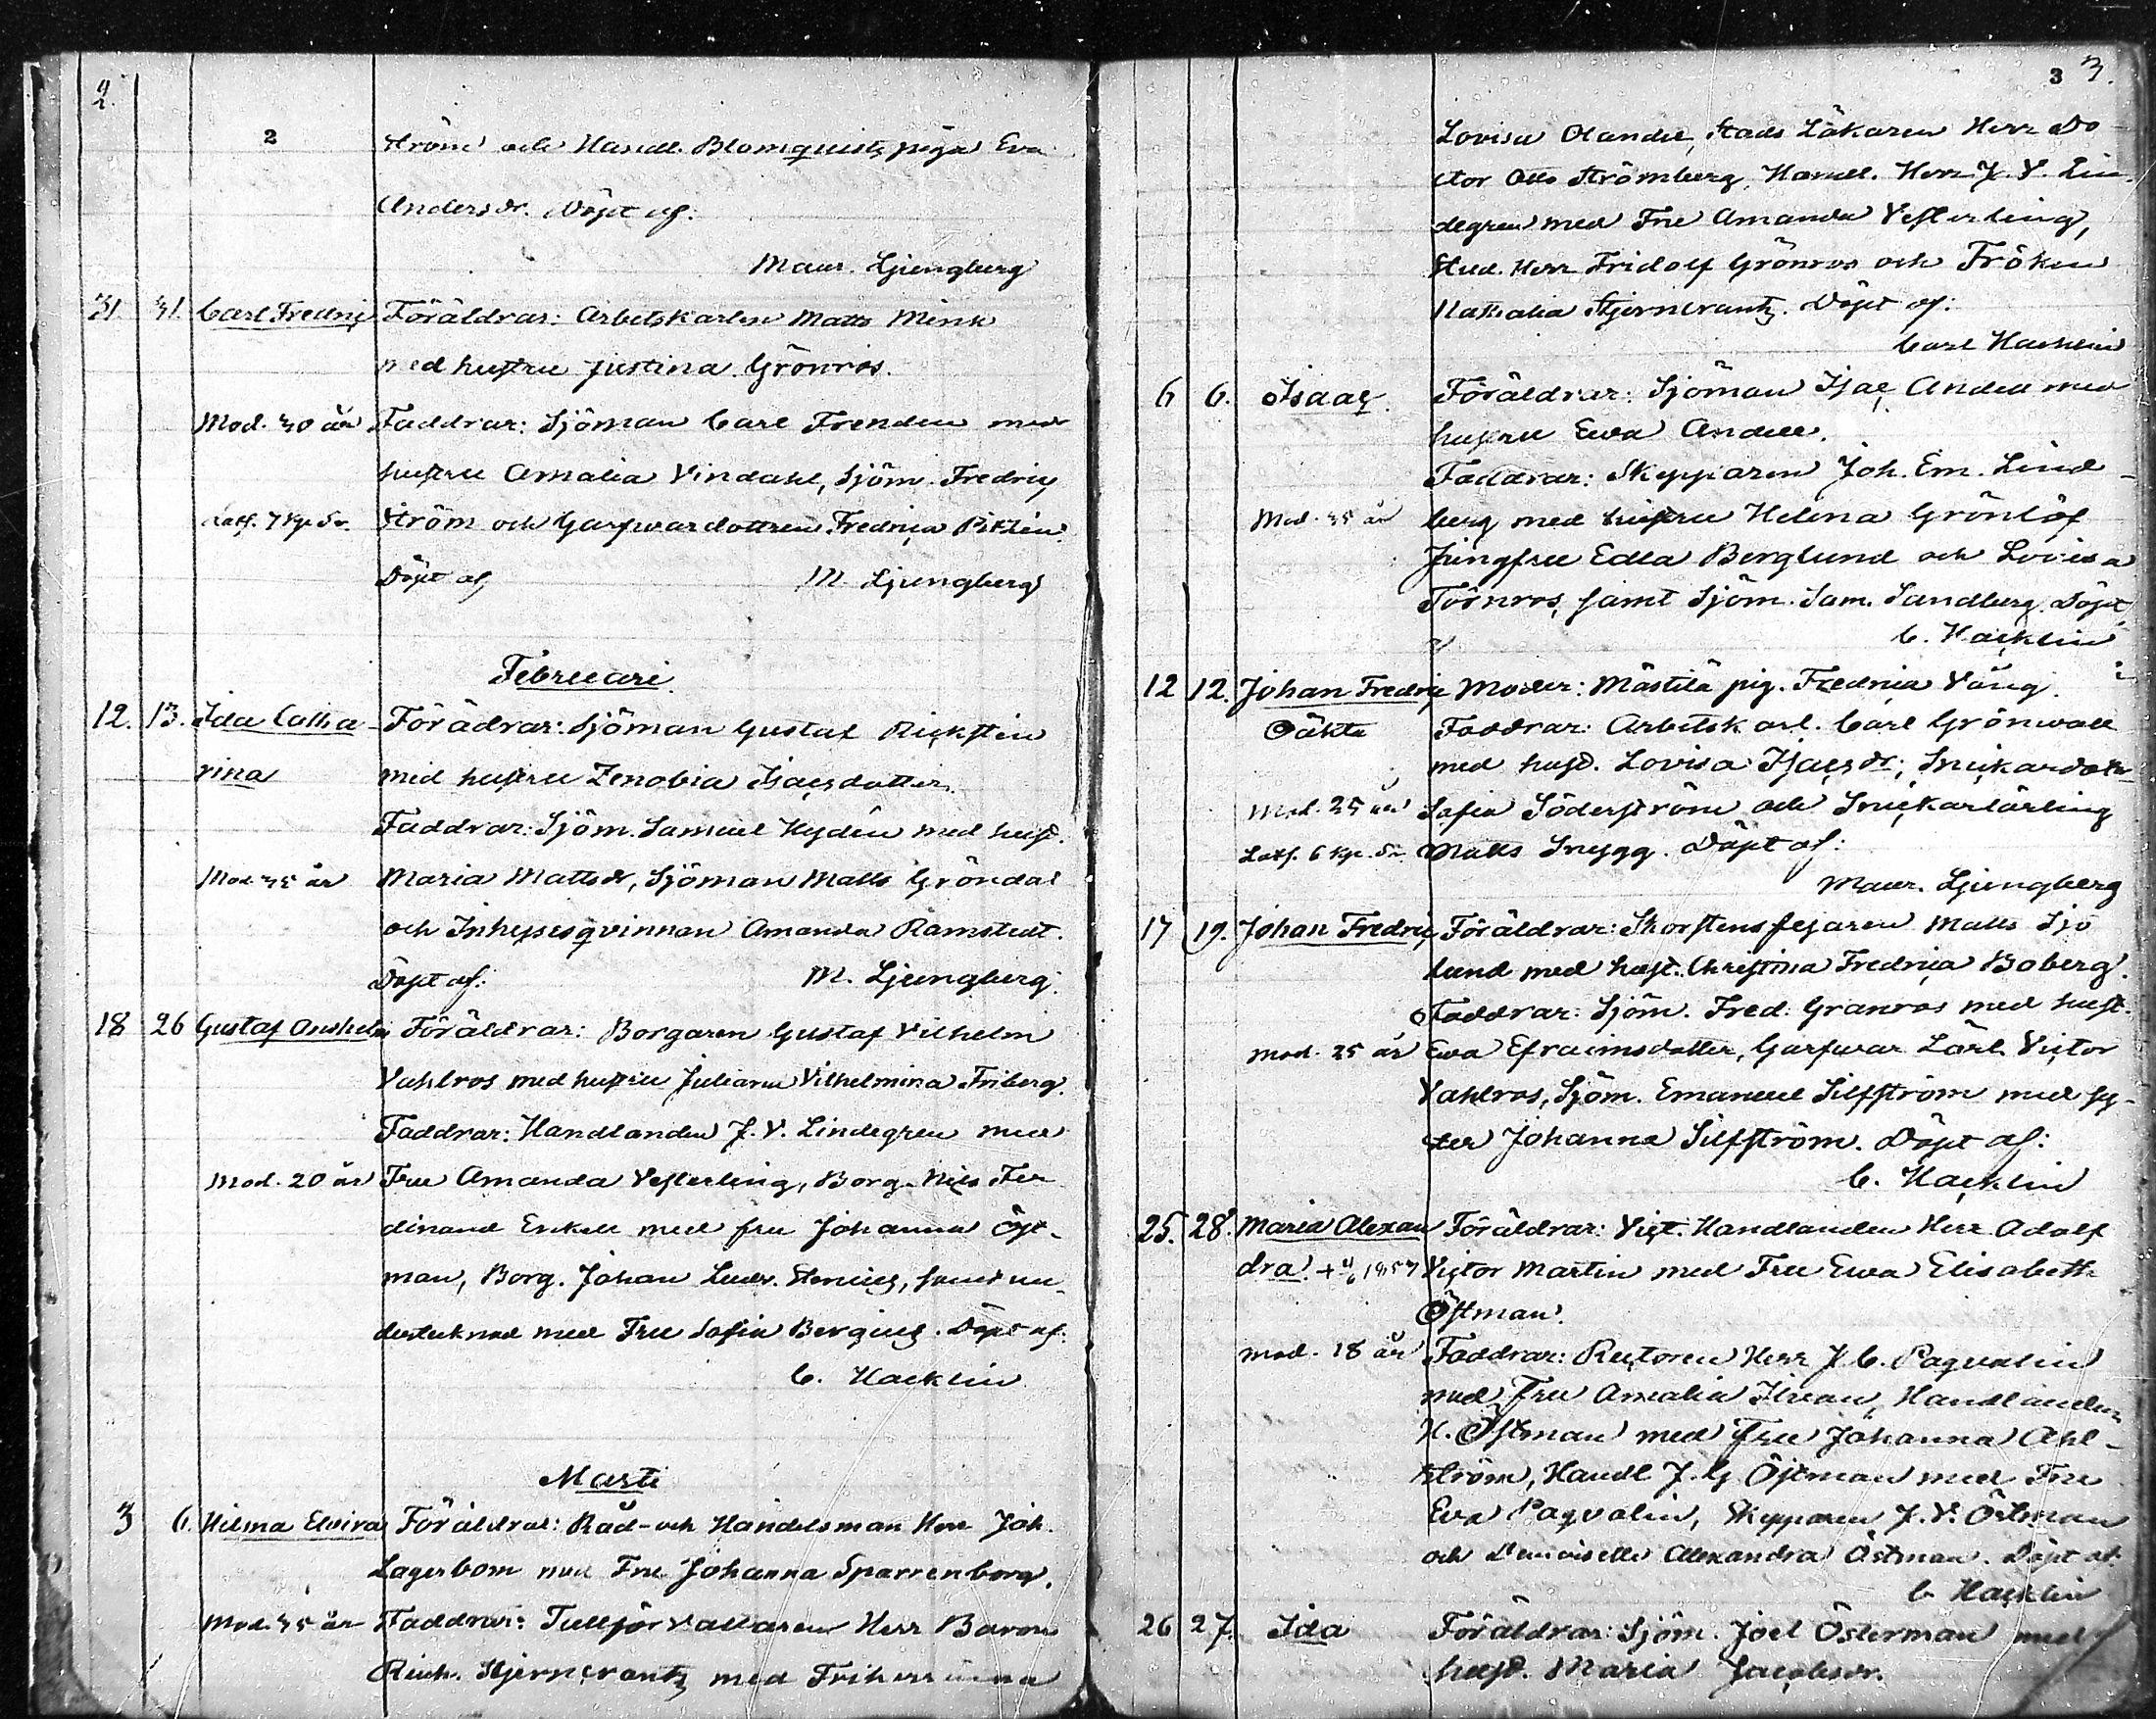 2.
2
ström och Handl. Blomquists piga Eva
Andersdr. Döpt af:
Maur. Ljungberg
31. 31. Carl Fredric Föräldrar: Arbetskarlen Matts Mink
med hustru Justina Grönros.
Mod. 30 år Faddrar: Sjöman Carl Frenden med
hustru Amalia Vindahl, Sjöm. Fredric
ström och Garfwardottren Fredrica
Döpt af M. Ljungberg
Februari.
12. 13. Ida Catha- Förädrar: Sjöman Gustaf Rickstin
rina med hustru Zenobia Isacsdotter.
Faddrar: Sjöm. Samuel Hydén med hust.
Mod. 35 år Maria Mattsdr, Sjöman Matts Gröndal
och Inhysesqvinnan Amanda Ramstedt.
Döpt af: M. Ljungberg.
18 26 Gustaf Anshelm Föräldrar: Borgaren Gustaf Vilhelm
Vahlros med hustru Juliana Vilhelmina Friberg.
Faddrar: Handlanden J. V. Lindegren med
Mod. 20 år Fru Amanda Vesterling, Borg. Nils Fer
dinand Enkell med fru Johanna Öst-
man, Borg. Johan Ludv. Stenius, samt un-
dertecknad med Fru Sofia Bergius. Döpt af:
C. Hacklin
Marti
3 6. Hilma Elvira Föräldrar: Råd- och Handelsman Herr Joh.
Lagerbom med Fru Johanna Sparrenborg.
Mod. 35 år Faddrar: Tullförvaltaren Herr Baron
Reinh. Stjerncrantz med Friherrinna
3 3.
Lovisa Olander, Stads Läkaren Herr Do
ctor Otto Strömberg, Handl. Herr J. V. Lin-
degren med Fru Amanda Vesterling,
Stud. Herr Fridolf Grönros och Fröken
Nathalia Stjerncrantz. Döpt af:
Carl Hacklin
6 6. Isaac. Föräldrar: Sjöman Isac Andell med
hustru Ewa Andell.
Faddrar: Skepparen Joh. Em. Lind-
Mod. 35 år berg med hustru Helena Grönlöf
Jungfru Edla Berglund och Lovisa
Törnros, samt Sjöm. Sam. Sandberg. Döpt
af C. Hacklin
12 12. Johan Fredric Moder: Mästilä pig. Fredrica Väng.
Oäkta Faddrar: Arbetskarl. Carl Grönwall
med hust. Lovisa Isacsdr, Snickardott
Mod. 25 år Sofia Söderström och Snickarlärling
Latf. 6 kyr. Sr. Matts Snygg. Döpt af:
Maur. Ljungberg
17 19. Johan Fredric Föräldrar: Skorstensfejaren Matts Sjö
lund med hust. Christina Fredrica Boberg.
Faddrar: Sjöm. Fred. Granros med hust.
Mod. 25 år Ewa Efraimsdotter, Garfwar Lärl. Victor
Vahlros, Sjöm. Emanuel Silfström med sy-
ster Johanna Silfström. Döpt af:
C. Hacklin
25. 28. Maria Alexan Föräldrar: Vict. Handlanden Herr Adolf
dra. Victor Martin med Fru Ewa Elisabeth
Östman.
Mod. 18 år Faddrar: Rectoren Herr J. C. Paqvalin
med Fru Amalia Handlanden
H. Östman med Fru Johanna Ahl-
ström, Handl J. G Östman med Fru
Eva Paqvalin, Skepparen J. V. Östman
och Demoiselle Alexandra Östman. Döpt af.
C Hacklin
26 27. Ida Föräldrar: Sjöm. Joel Österman med
hust. Maria Jacobsdr.